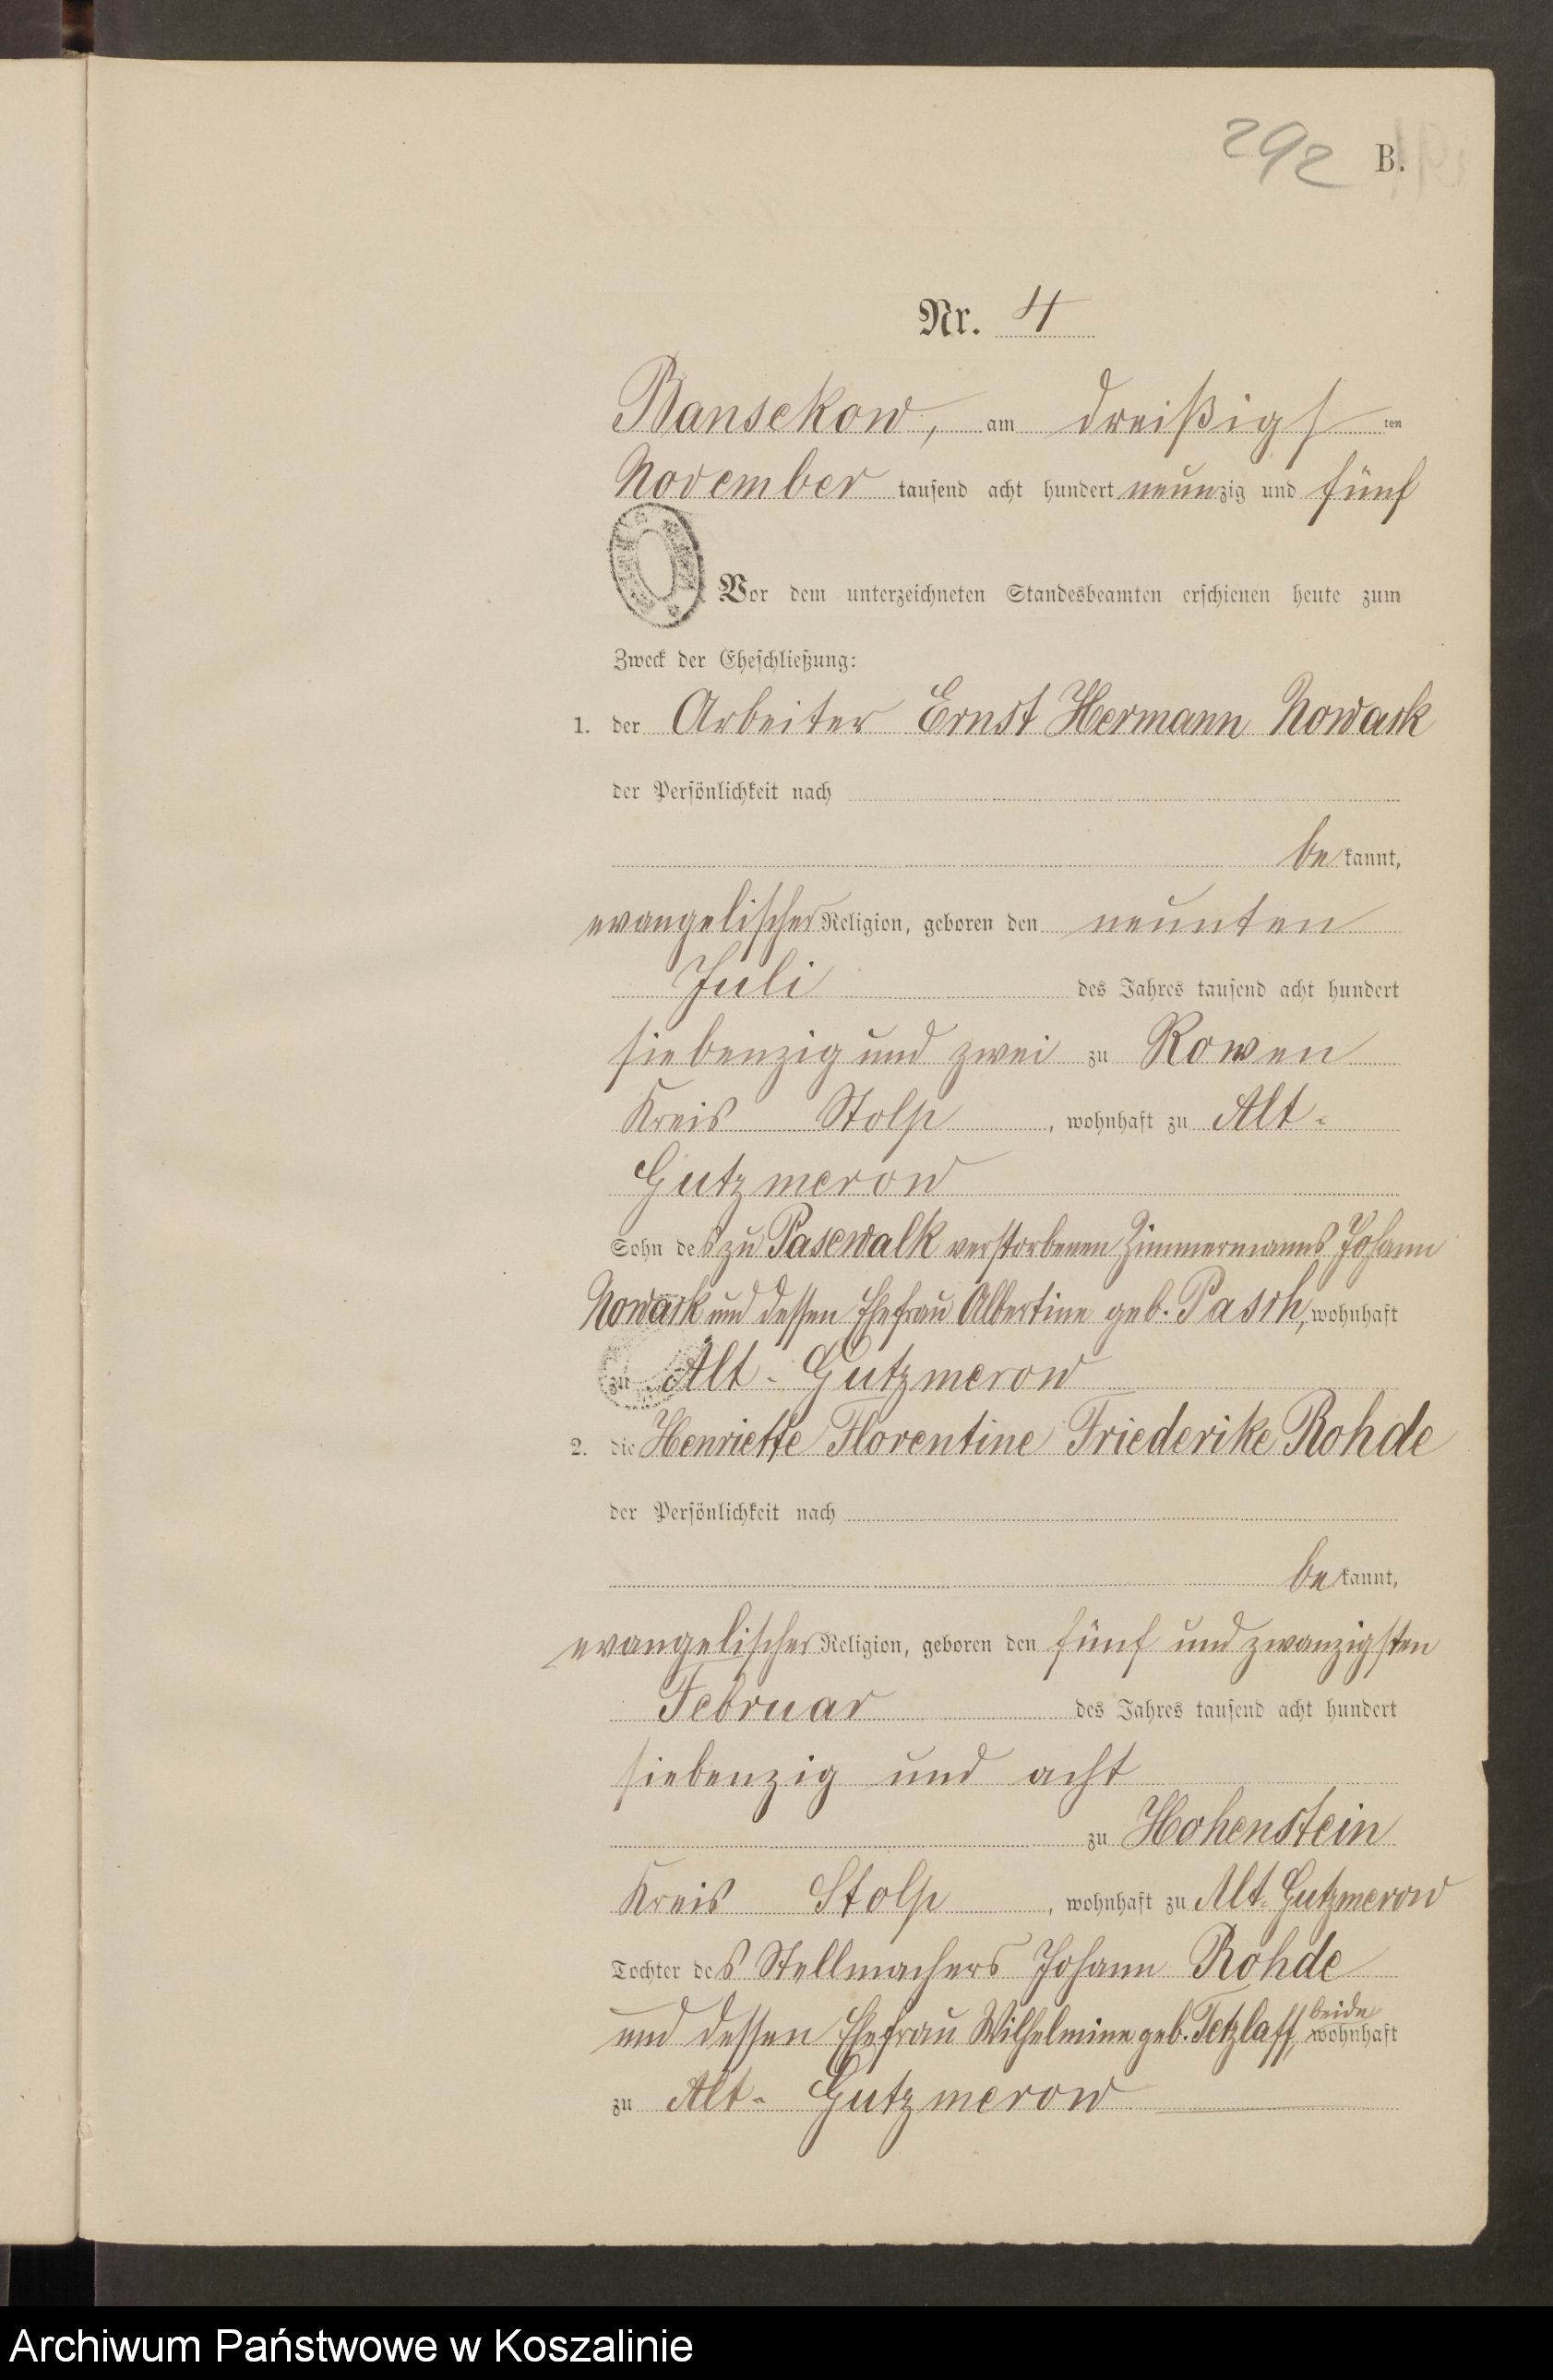 292 B.
Nr. 4
Bansekow, am dreißigsten
November tausend acht hundert neunzig und fünf
Vor dem unterzeichneten Standesbeamten erschienen heute zum
Zweck der Eheschließung:
1. der Arbeiter Ernst Hermann Nowack
der Persönlichkeit nach
bekannt,
evangelischer Religion, geboren den neunten
Juli des Jahres tausend acht hundert
siebenzig und zwei zu Rowen
Kreis Stolp, wohnhaft zu Alt-
Gutzmerow
Sohn des zu Pasewalk verstorbenen Zimmermanns Johann
Nowack und dessen Ehefrau Albertine geb. Pasch, wohnhaft
zu Alt-Gutzmerow
2. die Henriette Florentine Friederike Rohde
der Persönlichkeit nach
bekannt,
evangelischer Religion, geboren den fünf und zwanzigsten
Februar des Jahres tausend acht hundert
siebenzig und acht
zu Hohenstein
Kreis Stolp, wohnhaft zu Alt-Gutzmerow
Tochter des Stellmachers Johann Rohde
und dessen Ehefrau Wilhelmine geb. Tetzlaff, beide wohnhaft
zu Alt-Gutzmerow
Archiwum Państwowe w Koszalinie